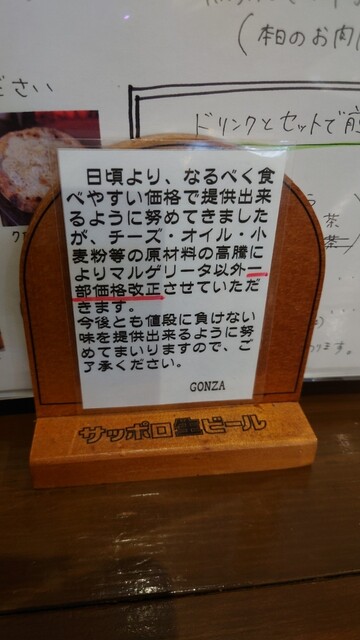 (本日のお肉
ださい
ドリンクとセットで前
茶
茶
ります。
日頃より、なるべく食
べやすい価格で提供出来
るように努めてきました
が、チーズ・オイル・小
麦粉等の原材料の高騰に
よりマルゲリータ以外一
部価格改正させていただ
きます。
今後とも値段に負けない
味を提供出来るように努
めてまいりますので、ご
了承ください。
GONZA
サッポロ生ビール